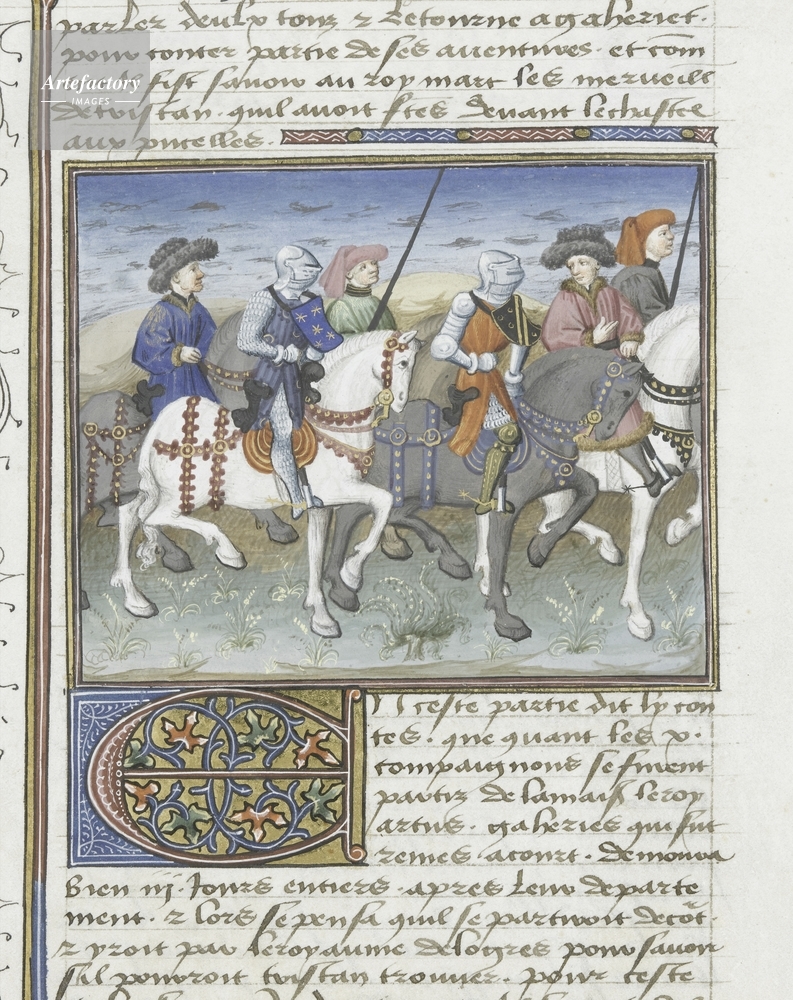 parler deulx tous 2 retourne agaheriet.
pour conter partie de ses auentures. et com
fist sauoir au roy marc les merueill
de tristan. quil auoit ftes deuant lechastee
aux pucelles.
Artefactory
IMAGES
En ceste partie dit ly con
tes. que quant les v.
compaignons se furent
partiz de lamais leroy
artus. gaheries qui fut
remes acourt. demoura
bien iij. Jours entiers. apres leur departe
ment. 2 lors se pensa quil se partiroit decot.
2 yroit par leroyaume delogres pour sauoir
sil pourroit tristan trouuer. pour ceste